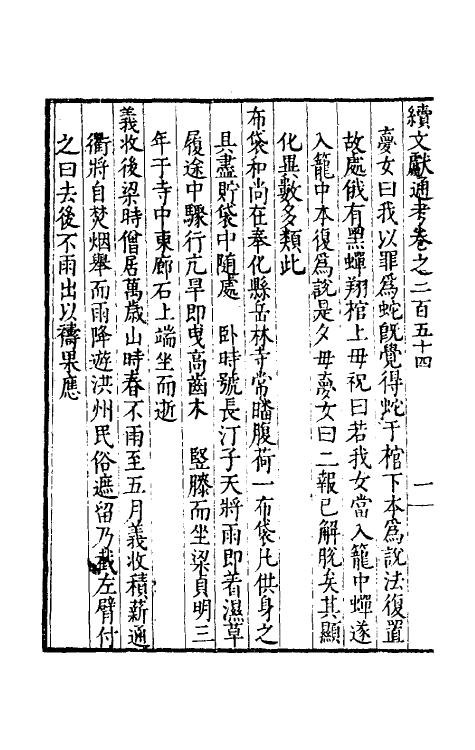 續文獻通考卷之二百五十四　　二
夢女曰我以罪爲蛇旣覺得蛇于棺下本爲說法復置
故處俄有黑蟬翔棺上毋祝曰若我女當入籠中蟬遂
入籠中本復爲說是夕毋夢女曰二報已解脫矣其顯
化異數多類此
布袋和尚在奉化縣岳林寺常皤腹荷一布袋凡供身之
具盡貯袋中隨處　卧時號長汀子天將雨即着濕草
履途中驟行亢旱即曳高齒木　竪膝而坐梁貞明三
年于寺中東廊石上端坐而逝
義收後梁時僧居萬歲山時春不雨至五月義收積薪通
衢將自焚烟舉而雨降遊洪州民俗遮留乃截左臂付
之曰去後不雨出以禱果應